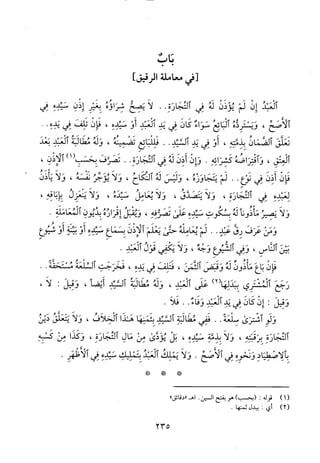 بَابٌ
[فِي مُعَامَلَةِ الرَّقِيقِ]
الْعَبْدُ إِنْ لَمْ يُؤْذَنْ لَهُ فِي التِّجَارَةِ.. لَا يَصِحُّ شِرَاؤُهُ بِغَيْرِ إِذْنِ سَيِّدِهِ فِي
الْأَصَحِّ ، وَيَسْتَرِدُّهُ الْبَائِعُ سَوَاءٌ كَانَ فِي يَدِ الْعَبْدِ أَوْ سَيِّدِهِ ، فَإِنْ تَلِفَ فِي يَدِهِ..
تَعَلَّقَ الضَّمَانُ بِذِمَّتِهِ ، أَوْ فِي يَدِ السَّيِّدِ.. فَلِلْبَائِعِ تَضْمِينُهُ ، وَلَهُ مُطَالَبَةُ الْعَبْدِ بَعْدَ
الْعِتْقِ ، وَاقْتِرَاضُهُ كَشِرَائِهِ . وَإِنْ أَذِنَ لَهُ فِي التِّجَارَةِ.. تَصَرَّفَ بِحَسَبِ(١) الْإِذْنِ ،
فَإِنْ أَذِنَ فِي نَوْعٍ.. لَمْ يَتَجَاوَزْهُ ، وَلَيْسَ لَهُ النِّكَاحُ ، وَلَا يُؤَجِّرُ نَفْسَهُ ، وَلَا يَأْذَنُ
لِعَبْدِهِ فِي التِّجَارَةِ ، وَلَا يَتَصَدَّقُ ، وَلَا يُعَامِلُ سَيِّدَهُ ، وَلَا يَنْعَزِلُ بِإِبَاقِهِ ،
وَلَا يَصِيرُ مَأْذُوناً لَهُ بِسُكُوتِ سَيِّدِهِ عَلَىٰ تَصَرُّفِهِ ، وَيُقْبَلُ إِقْرَارُهُ بِدُيُونِ الْمُعَامَلَةِ .
وَمَنْ عَرَفَ رِقَّ عَبْدٍ.. لَمْ يُعَامِلْهُ حَتَّىٰ يَعْلَمَ الْإِذْنَ بِسَمَاعِ سَيِّدِهِ أَوْ بَيِّنَةٍ أَوْ شُيُوعٍ
بَيْنَ النَّاسِ ، وَفِي الشُّيُوعِ وَجْهٌ ، وَلَا يَكْفِي قَوْلُ الْعَبْدِ .
فَإِنْ بَاعَ مَأْذُونٌ لَهُ وَقَبَضَ الثَّمَنَ ، فَتَلِفَ فِي يَدِهِ ، فَخَرَجَتِ السِّلْعَةُ مُسْتَحَقَّةً..
رَجَعَ الْمُشْتَرِي بِبَدَلِهَا(٢) عَلَى الْعَبْدِ ، وَلَهُ مُطَالَبَةُ السَّيِّدِ أَيْضاً ، وَقِيلَ : لَا ،
وَقِيلَ : إِنْ كَانَ فِي يَدِ الْعَبْدِ وَفَاءٌ.. فَلَا .
وَلَوِ اشْتَرَىٰ سِلْعَةً.. فَفِي مُطَالَبَةِ السَّيِّدِ بِثَمَنِهَا هَذَا الْخِلَافُ ، وَلَا يَتَعَلَّقُ دَيْنُ
التِّجَارَةِ بِرَقَبَتِهِ ، وَلَا بِذِمَّةِ سَيِّدِهِ ، بَلْ يُؤَدَّىٰ مِنْ مَالِ التِّجَارَةِ ، وَكَذَا مِنْ كَسْبِهِ
بِالِاصْطِيَادِ وَنَحْوِهِ فِي الْأَصَحِّ . وَلَا يَمْلِكُ الْعَبْدُ بِتَمْلِيكِ سَيِّدِهِ فِي الْأَظْهَرِ .
* * *
(١) قوله : (بحسب) هو بفتح السين . اهـ «دقائق»
(٢) أي : ببدل ثمنها .
٢٣٥